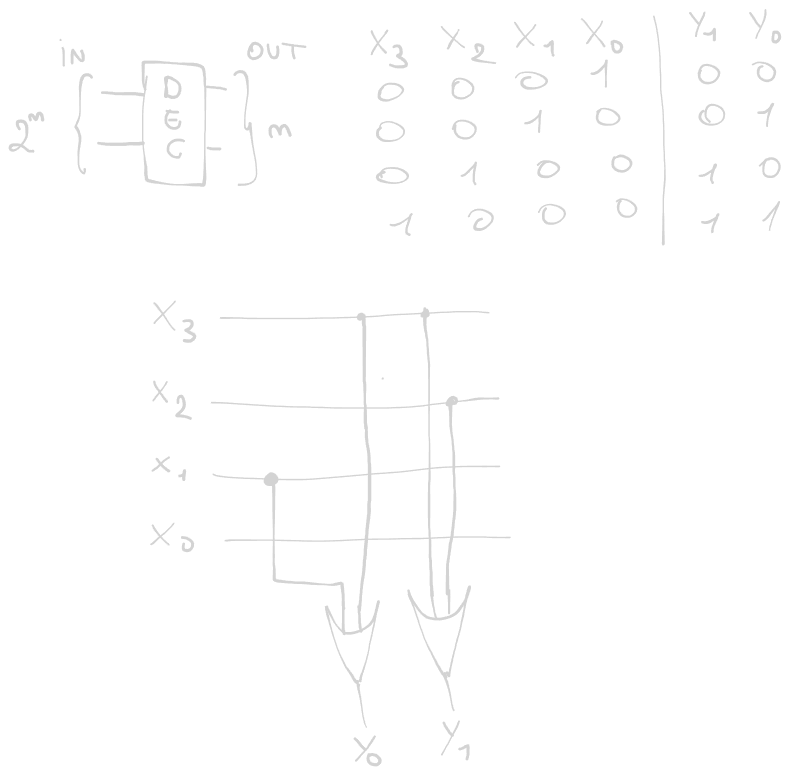 IN OUT
2^m D E C m
X3 X2 X1 X0 Y1 Y0
0 0 0 1 0 0
0 0 1 0 0 1
0 1 0 0 1 0
1 0 0 0 1 1
X3
X2
X1
X0
Y0 Y1